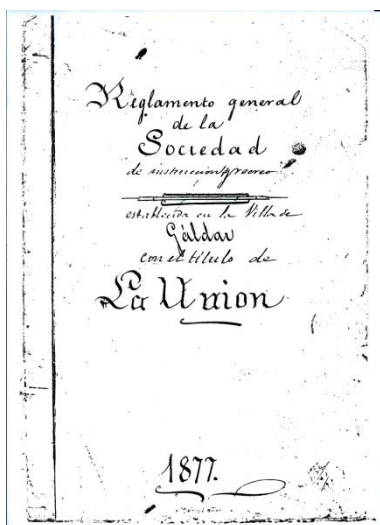 Reglamento general
de la
Sociedad
de instruccion y recreo
establecida en la Villa de
Gáldar
con el título de
La Union
1877.